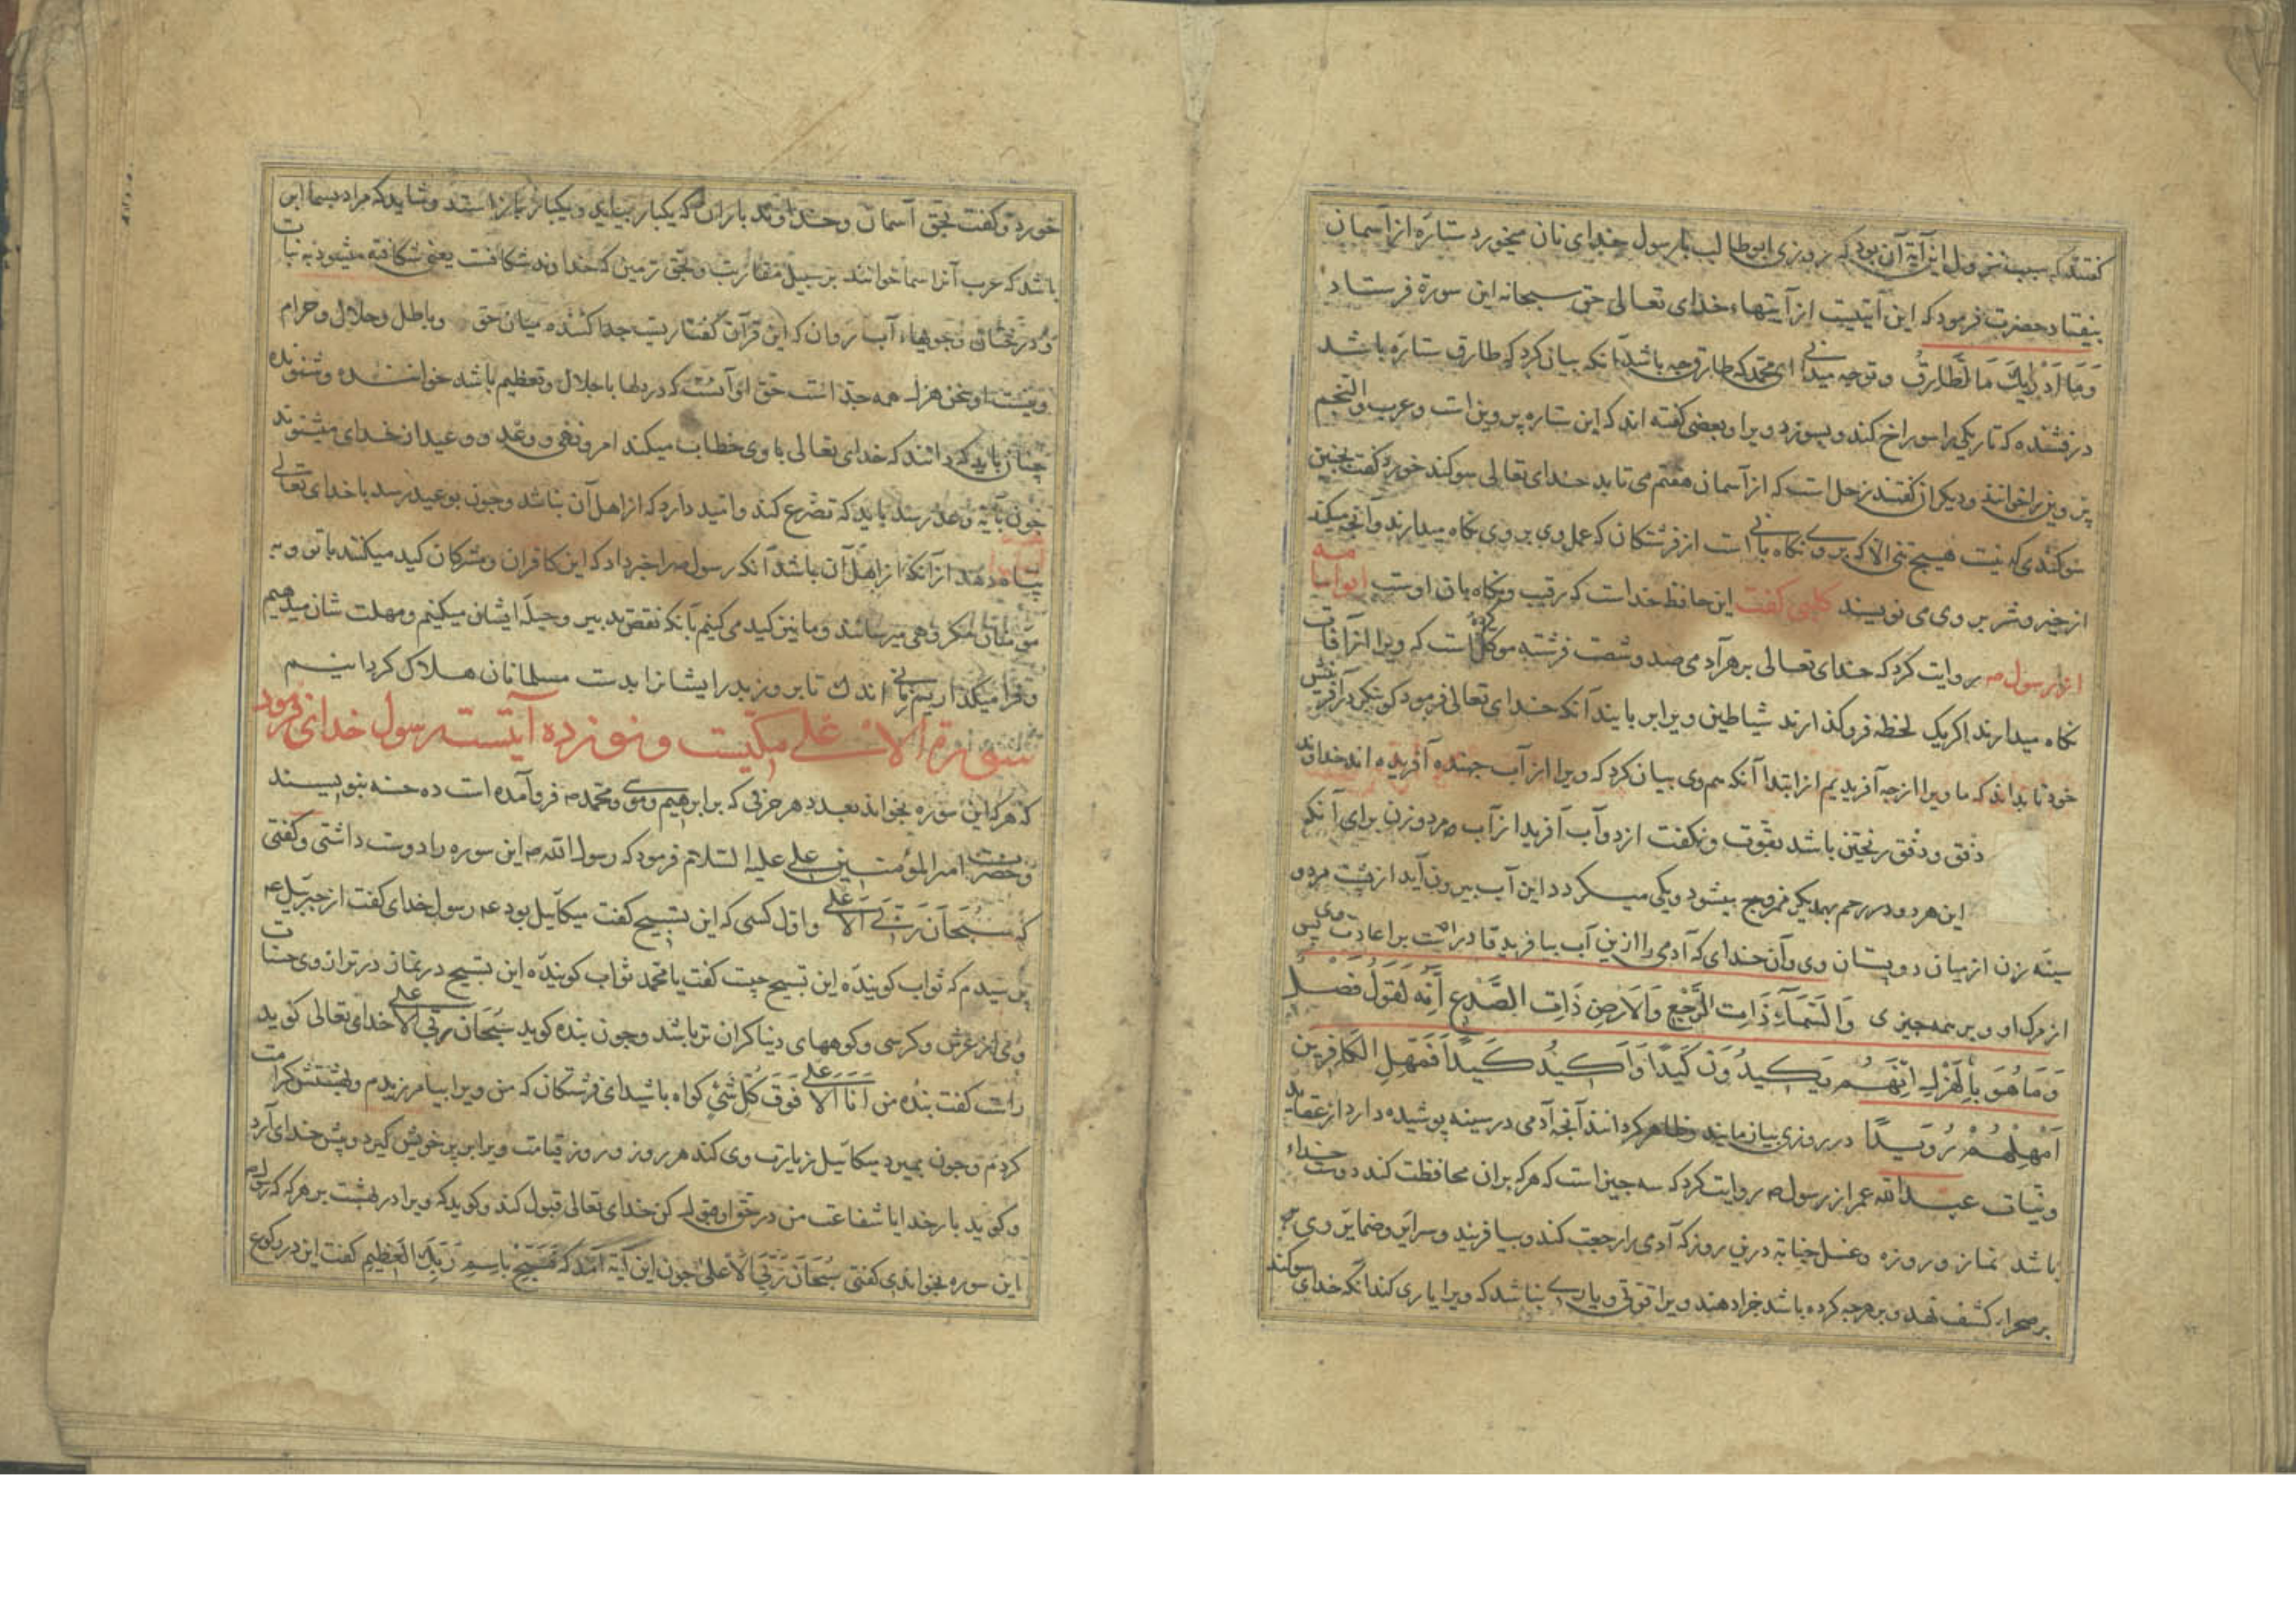 گفتند که سبب نزول این آیة آن بود که روزی ابوطالب با رسول خدای نان میخورد ستاره از آسمان
بیفتاد حضرت فرمود که این آیتیست از آیتهاء خدای تعالی حق سبحانه این سورة فرستاد
وَمَا أَدْرٰیكَ مَا الطَّارِقُ و توجه میدانی ای محمد که طارق چه باشد آنکه بیان کرد که طارق ستاره باشد
درفشنده که تاریکی را سوراخ کند و بسوزد ویرا و بعضی گفته اند که این ستاره پروین است و عرب والنجم
پروین را خوانند و دیگران گفتند زحل است که از آسمان هفتم می تابد خدای تعالی سوکند خورد گفت بچنین
سوکندی که نیست هیچ تنی الا که بر وی نگاه بانی است از فرشتگان که عمل وی بر وی نگاه میدارند و آنچه میکند
از خیر و شر بر وی می نویسند کلبی گفت این حافظ خداست که رقیب و نگاه بان اوست ابو امامه
از رسول ص روایت کرد که خدای تعالی بر هر آدمی صد و شصت فرشته موکل کرده است که ویرا از آفات
نگاه میدارند اگر یک لحظه فروگذارند شیاطین ویرا بربایند آنکه خدای تعالی فرمود کو بنگر در آفرینش
خود تا بداند که ما ویرا از چه آفریدیم از ابتدا آنکه هم وی بیان کرد که ویرا از آب جهنده آفریده اند خداوند
دفق و دفق ریختن باشد بقوت و نگفت از دو آب آفرید از آب مرد و زن برای آنکه
این هر دو در رحم بهمدیگر ممزوج میشود و یکی میگردد این آب بیرون آید از پشت مرد و
سینه زن از میان دو پستان وی و آن خدای که آدمی را ازین آب بیافرید قادر است بر اعادت وی پس
از مرگ او و بر همه چیزی وَالسَّمَاۤءِ ذَاتِ الرَّجْعِ وَالْاَرْضِ ذَاتِ الصَّدْعِ اِنَّهُ لَقَوْلٌ فَصْلٌ
وَمَا هُوَ بِالْهَزْلِ اِنَّهُمْ یَكِیدُونَ كَیْدًا وَاَكِیدُ كَیْدًا فَمَهِّلِ الْكَافِرِینَ
اَمْهِلْهُمْ رُوَیْدًا در روزی بیازمایند و ظاهر گردانند آنچه آدمی در سینه پوشیده دارد از عقاید
و نیات عبد الله عمر از رسول ص روایت کرد که سه چیز است که هر که بران محافظت کند دوست خداء
باشد نماز و روزه و غسل جنابه درین روز که آدمی را رجعت کند و بیافریند و سرایر و ضمایر وی
بر صحراء کشف نهد و بر هر چه کرده باشد جزا دهند ویرا قوتی و یاری نباشد که ویرا یاری کند آنکه خدای سوکند
خورد و گفت بحق آسمان و خداوند باران که یکبار بیاید و یکبار باز استد و شاید که مراد بسما ابر
باشد که عرب آنرا سما خوانند بر سبیل مقاربت و بحق زمین که خداوند شکافت یعنی شکافته میشود به نبات
و درختان و جویهاء آب روان که این قرآن گفتاریست جدا کننده میان حق و باطل و حلال و حرام
و نیست او سخن هزل همه جد است حق او آنست که در دلها با جلال و تعظیم باشد خواننده و شنونده
چنان باید که دانند که خدای تعالی با وی خطاب میکند امر و نهی و وعد و وعید از خدای میشنوند
چون بآیة وعد رسد باید که تضرع کند و امید دارد که از اهل آن باشد و چون بوعید رسد با خدای تعالی
پناه دهد از آنکه از اهل آن باشد آنکه رسول ص را خبر داد که این کافران و مشرکان کید میکنند با تو و به
مؤمنان مکروهی میرسانند و ما نیز کید می کنیم بآنکه نقض تدبیر و حیله ایشان میکنیم و مهلت شان میدهیم
و فرا میگذاریم زمانی اندک تا بروز بدر ایشانرا بدست مسلمانان هلاک گردانیم
سورة الاعلی مکیست و نوزده آیتست رسول خدای فرمود
که هر که این سوره بخواند بعدد هر حرفی که بر ابرهیم و موسی و محمد ص فرو آمده است ده حسنه بنویسند
و حضرت امیر المؤمنین علی علیه السلام فرمود که رسول الله ص این سوره را دوست داشتی و گفتی
که سُبْحَانَ رَبِّیَ الْاَعْلی و اول کسی که این تسبیح گفت میکائیل بود عم رسول خدای گفت از جبرئیل عم
پرسیدم که ثواب گوینده این تسبیح چیست گفت یا محمد ثواب گوینده این تسبیح در نماز در ترازوی حسنات
وی از عرش و کرسی و کوههای دنیا گران تر باشد و چون بنده گوید سُبْحَانَ رَبِّیَ الْاَعْلی خدای تعالی گوید
راست گفت بنده من اَنَا الْاَعْلی فَوْقَ كُلِّ شَیْءٍ گواه باشید ای فرشتگان که من ویرا بیامرزیدم و بهشتش کرامت
کردم و چون بمیرد میکائیل زیارت وی کند هر روز و روز قیامت ویرا بر پر خویش گیرد و پیش خدای آرد
و گوید بار خدایا شفاعت من در حق او قبول کن خدای تعالی قبول کند و گوید که ویرا در بهشت بر هر که که رسول ص
این سوره بخواندی گفتی سُبْحَانَ رَبِّیَ الْاَعْلی چون این آیة آمد که فَسَبِّحْ بِاسْمِ رَبِّكَ الْعَظِیمِ گفت این در رکوع